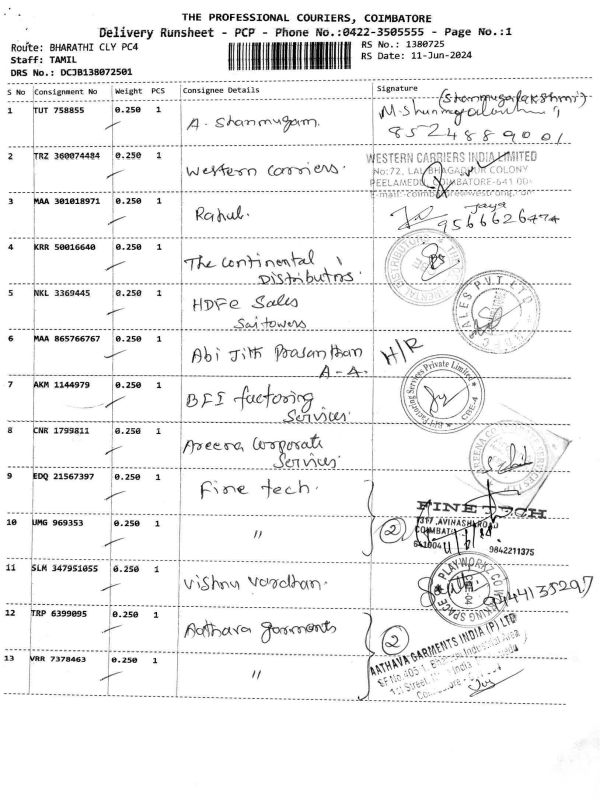 THE PROFESSIONAL COURIERS, COIMBATORE
Delivery Runsheet - PCP - Phone No.:0422-3505555 - Page No.:1
Route: BHARATHI CLY PC4
RS No.: 1380725
Staff: TAMIL
RS Date: 11-Jun-2024
DRS No.: DCJB138072501
S No Consignment No Weight PCS Consignee Details Signature
(Shanmugalakshmi)
1 TUT 758855 0.250 1 A. Shanmugam.
8524889001
2 TRZ 360074484 0.250 1 Western carriers.
WESTERN CARRIERS INDIA LIMITED
No:72, LAL BHAGADUR COLONY
PEELAMEDU, COIMBATORE-641 004
3 MAA 301018971 0.250 1 Rahul.
Jaya
9566626474
4 KRR 50016640 0.250 1 The continental
Distributors.
5 NKL 3369445 0.250 1 HDFC Sales
Saitowers
SALES PVT LTD
6 MAA 865766767 0.250 1 Abi Jith Prasanthan
A-A.
H/R
7 AKM 1144979 0.250 1 BFI factoring
Services.
BFI Factoring Services Private Limited
CBE-4
8 CNR 1799811 0.250 1 Areena Corporate
Services.
9 EDQ 21567397 0.250 1 Fine tech.
FINE TECH
AVINASHI ROAD
10 UMG 969353 0.250 1 "
2
641004
9842211375
11 SLM 347951055 0.250 1 Vishnu Vardhan.
PLAYWORKZ CO WORKING SPACE
9444135297
12 TRP 6399095 0.250 1 Aathava garments
2
AATHAVA GARMENTS INDIA (P) LTD
13 VRR 7378463 0.250 1 "